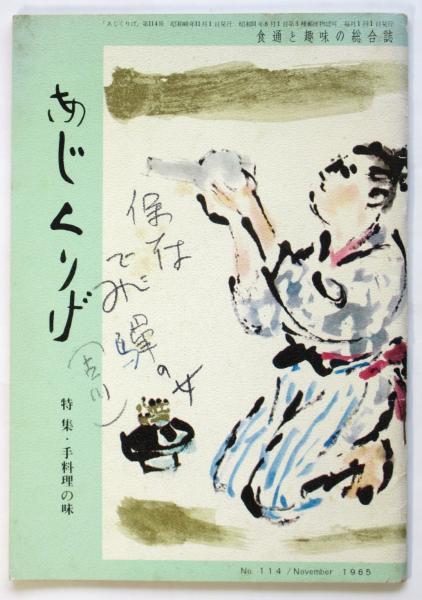 「あじくりげ」第114号 昭和40年11月1日発行 昭和31年8月1日第3種郵便物認可 毎月1回1日発行
食通と趣味の総合誌
あじくりげ
特集・手料理の味
の女
(古川)
No. 114 / November 1965